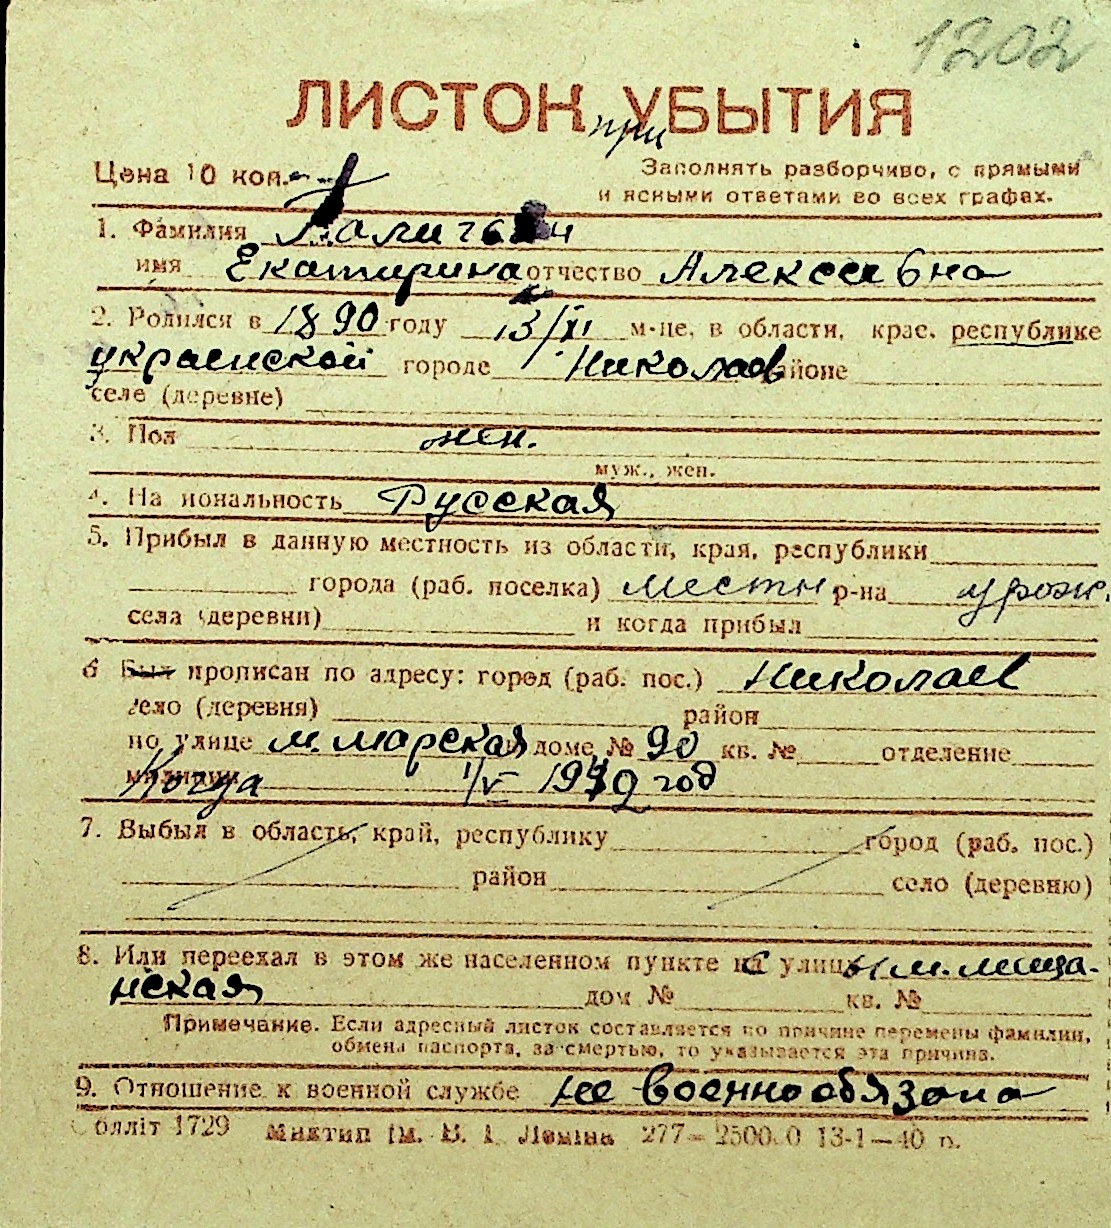 1202
ЛИСТОК УБЫТИЯ
при
Цена 10 коп.
Заполнять разборчиво, с прямыми
и ясными ответами во всех графах.
1. Фамилия
имя Екатерина отчество Алексеевна
2. Родился в 1890 году 13/XI м-це, в области, крае, республике
украинской городе Николаев районе
селе (деревне)
3. Пол жен.
муж., жен.
4. Национальность Русская
5. Прибыл в данную местность из области, края, республики
города (раб. поселка) местн р-на урож.
села (деревни) и когда прибыл
6 Был прописан по адресу: город (раб. пос.) Николаев
село (деревня) район
по улице м. морская доме № 90 кв. № отделение
милиции Когда 1/V 1942 год
7. Выбыл в область, край, республику город (раб. пос.)
район село (деревню)
8. Или переехал в этом же населенном пункте с улицы м. меща-
нская дом № кв. №
Примечание. Если адресный листок составляется по причине перемены фамилии,
обмена паспорта, за смертью, то указывается эта причина.
9. Отношение к военной службе не военнообязана
Обліт 1729 Миктип ім. В. І. Леніна 277— 25000 13-1—40 р.